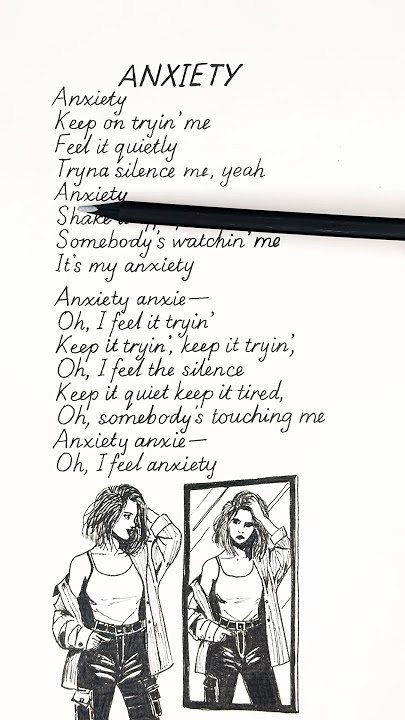 ANXIETY
Anxiety
Keep on tryin' me
Feel it quietly
Tryna silence me, yeah
Anxiety
Shake
Somebody's watchin' me
It's my anxiety
Anxiety anxie—
Oh, I feel it tryin'
Keep it tryin', keep it tryin',
Oh, I feel the silence
Keep it quiet keep it tired,
Oh, somebody's touching me
Anxiety anxie—
Oh, I feel anxiety